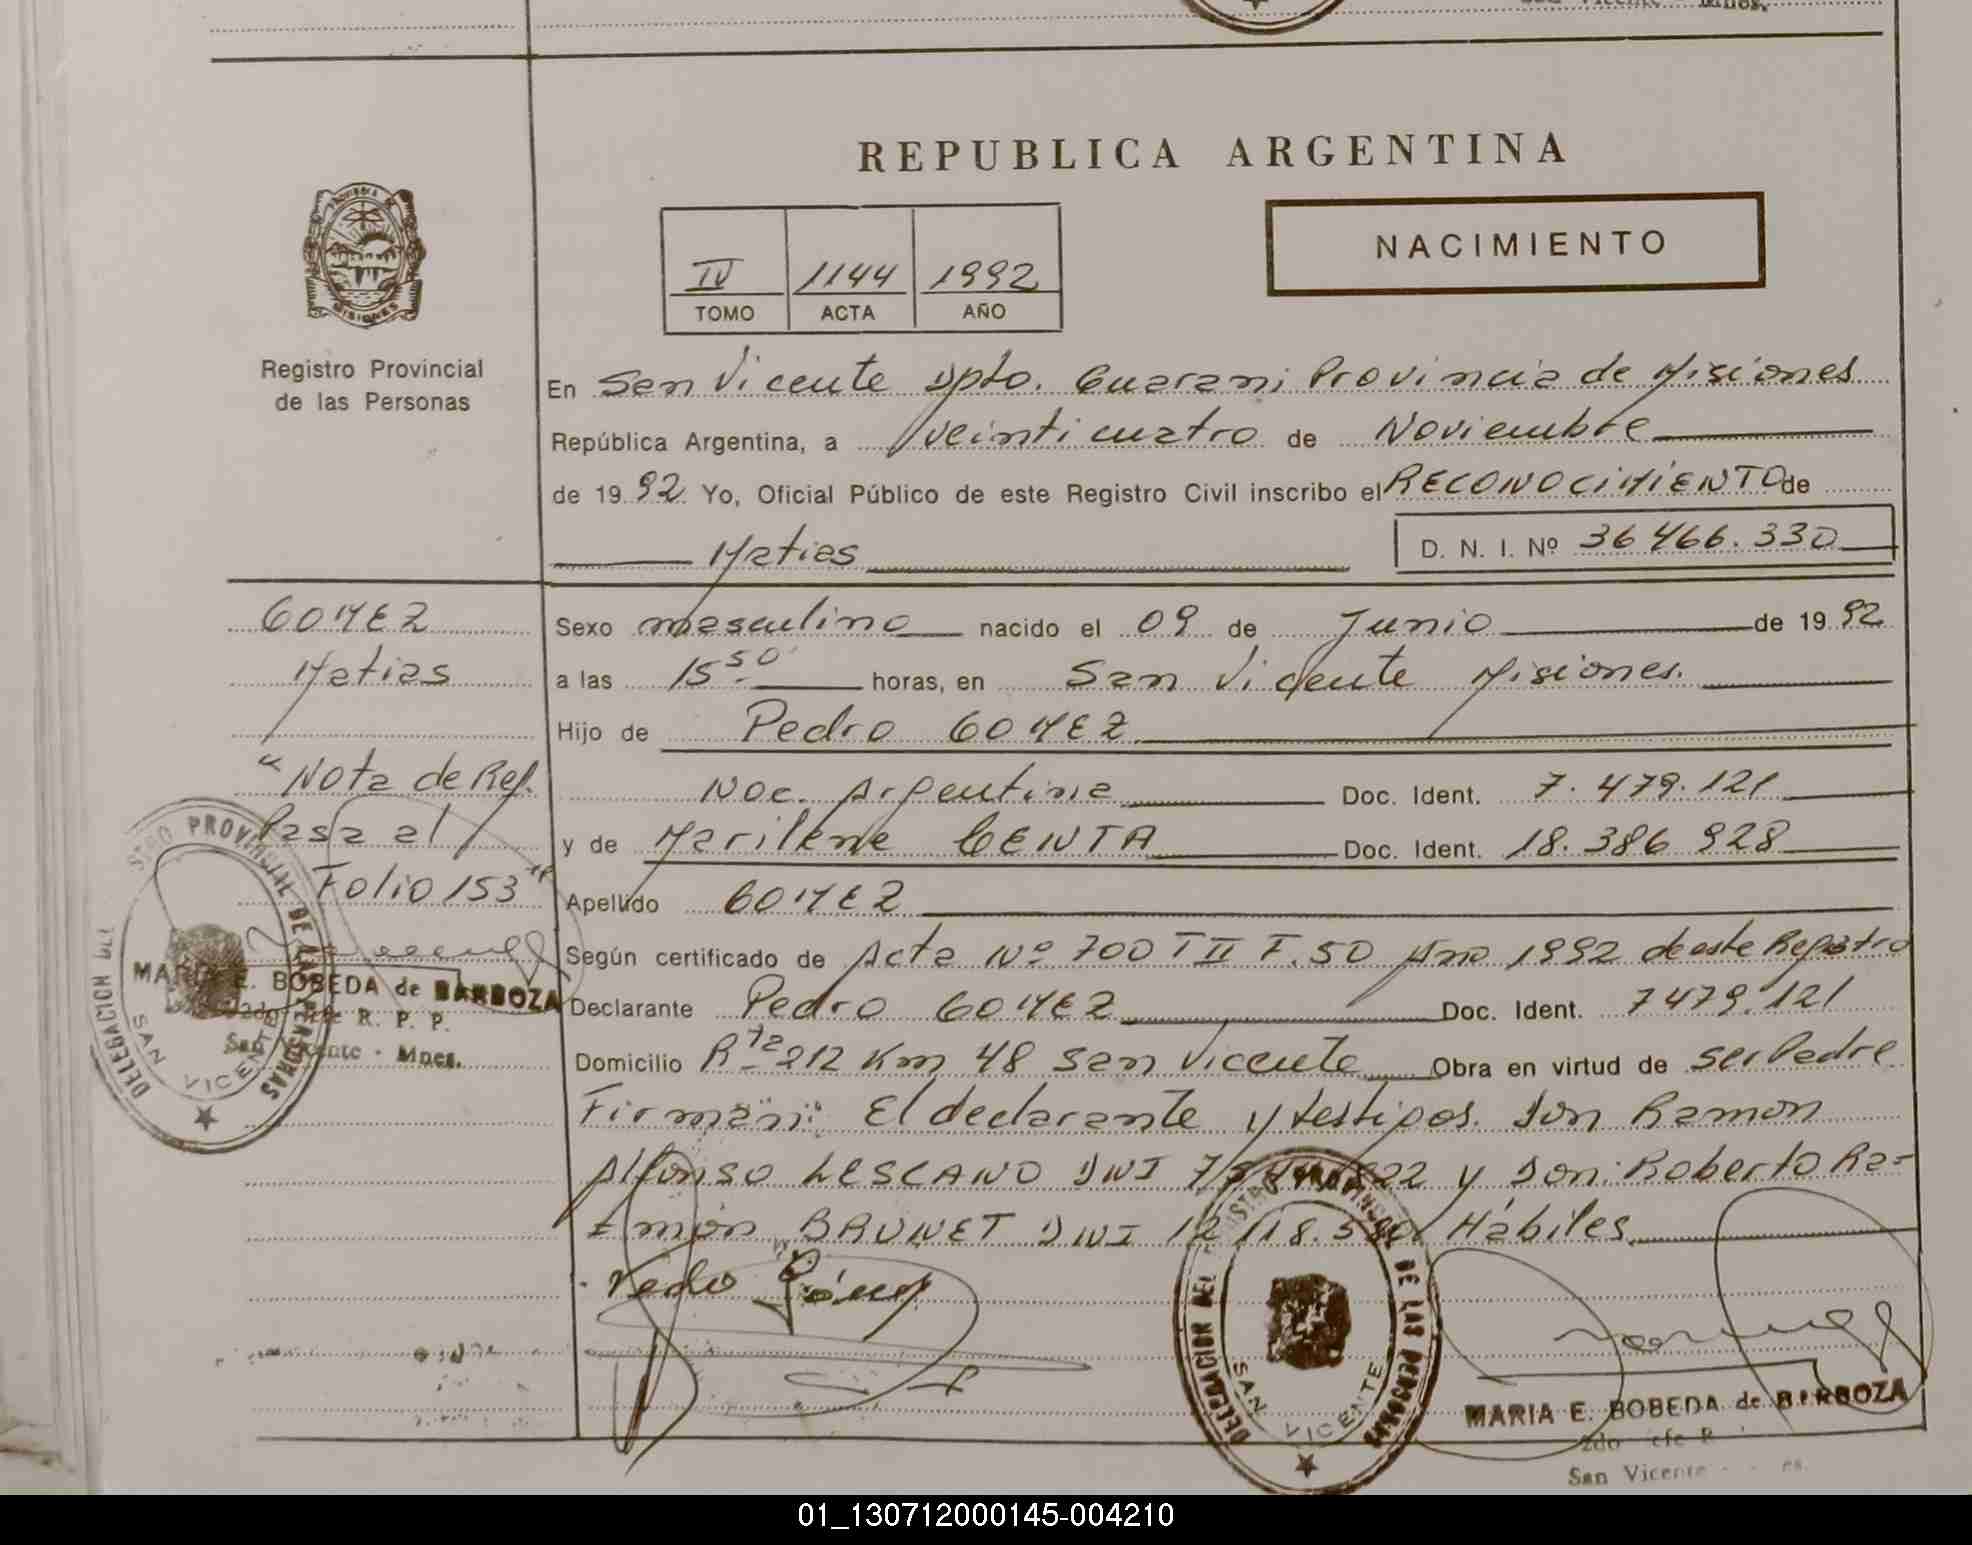 REPUBLICA ARGENTINA
PROVINCIA DE
MISIONES
Registro Provincial
de las Personas
IV 1144 1992
TOMO ACTA AÑO
NACIMIENTO
En San Vicente Dpto. Guarani Provincia de Misiones
República Argentina, a Veinticuatro de Noviembre
de 1992 Yo, Oficial Público de este Registro Civil inscribo el RECONOCIMIENTO de
Matias
D. N. I. Nº 36466.330
GOMEZ
Matias
"Nota de Ref.
Pasa al
Folio 153"
Sexo masculino nacido el 09 de Junio de 1992
a las 15 50 horas, en San Vicente Misiones.
Hijo de Pedro GOMEZ
Nac. Argentina Doc. Ident. 7.479.121
y de Marilene CENTA Doc. Ident. 18.386 928
Apellido GOMEZ
Según certificado de Acta Nº 700 T II F. 50 Año 1992 de este Registro
Declarante Pedro GOMEZ Doc. Ident. 7479.121
Domicilio Rta 212 Km 48 San Vicente Obra en virtud de ser Padre
Firman: El declarante y testigos. Don Ramon
Alfonso LESCANO DNI y Don: Roberto Ra=
=mon BRUNET DNI Hábiles
Pedro Gómez
DELEGACION DEL REGISTRO PROVINCIAL DE LAS PERSONAS
SAN VICENTE
MARIA E. BOBEDA de BARBOZA
2do Jefe R. P. P.
San Vicente - Mnes.
DELEGACION DEL REGISTRO PROVINCIAL DE LAS PERSONAS
SAN VICENTE
MARIA E. BOBEDA de BARBOZA
2do Jefe R
San Vicente
01_130712000145-004210